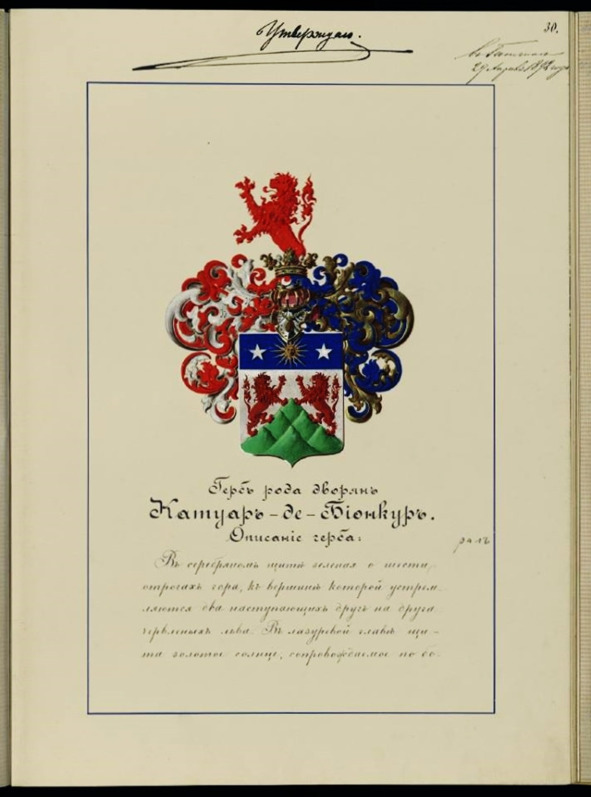 Утверждаю.
30.
Гербъ рода дворянъ
Катуаръ-де-Біонкуръ.
Описаніе герба:
ралъ
Въ серебряномъ щитѣ зеленая о шести
отрогахъ гора, къ вершинѣ которой устрем-
ляются два наступающихъ другъ на друга
червленыхъ льва. Въ лазуревой главѣ щи-
та золотое солнце, сопровождаемое по бо-